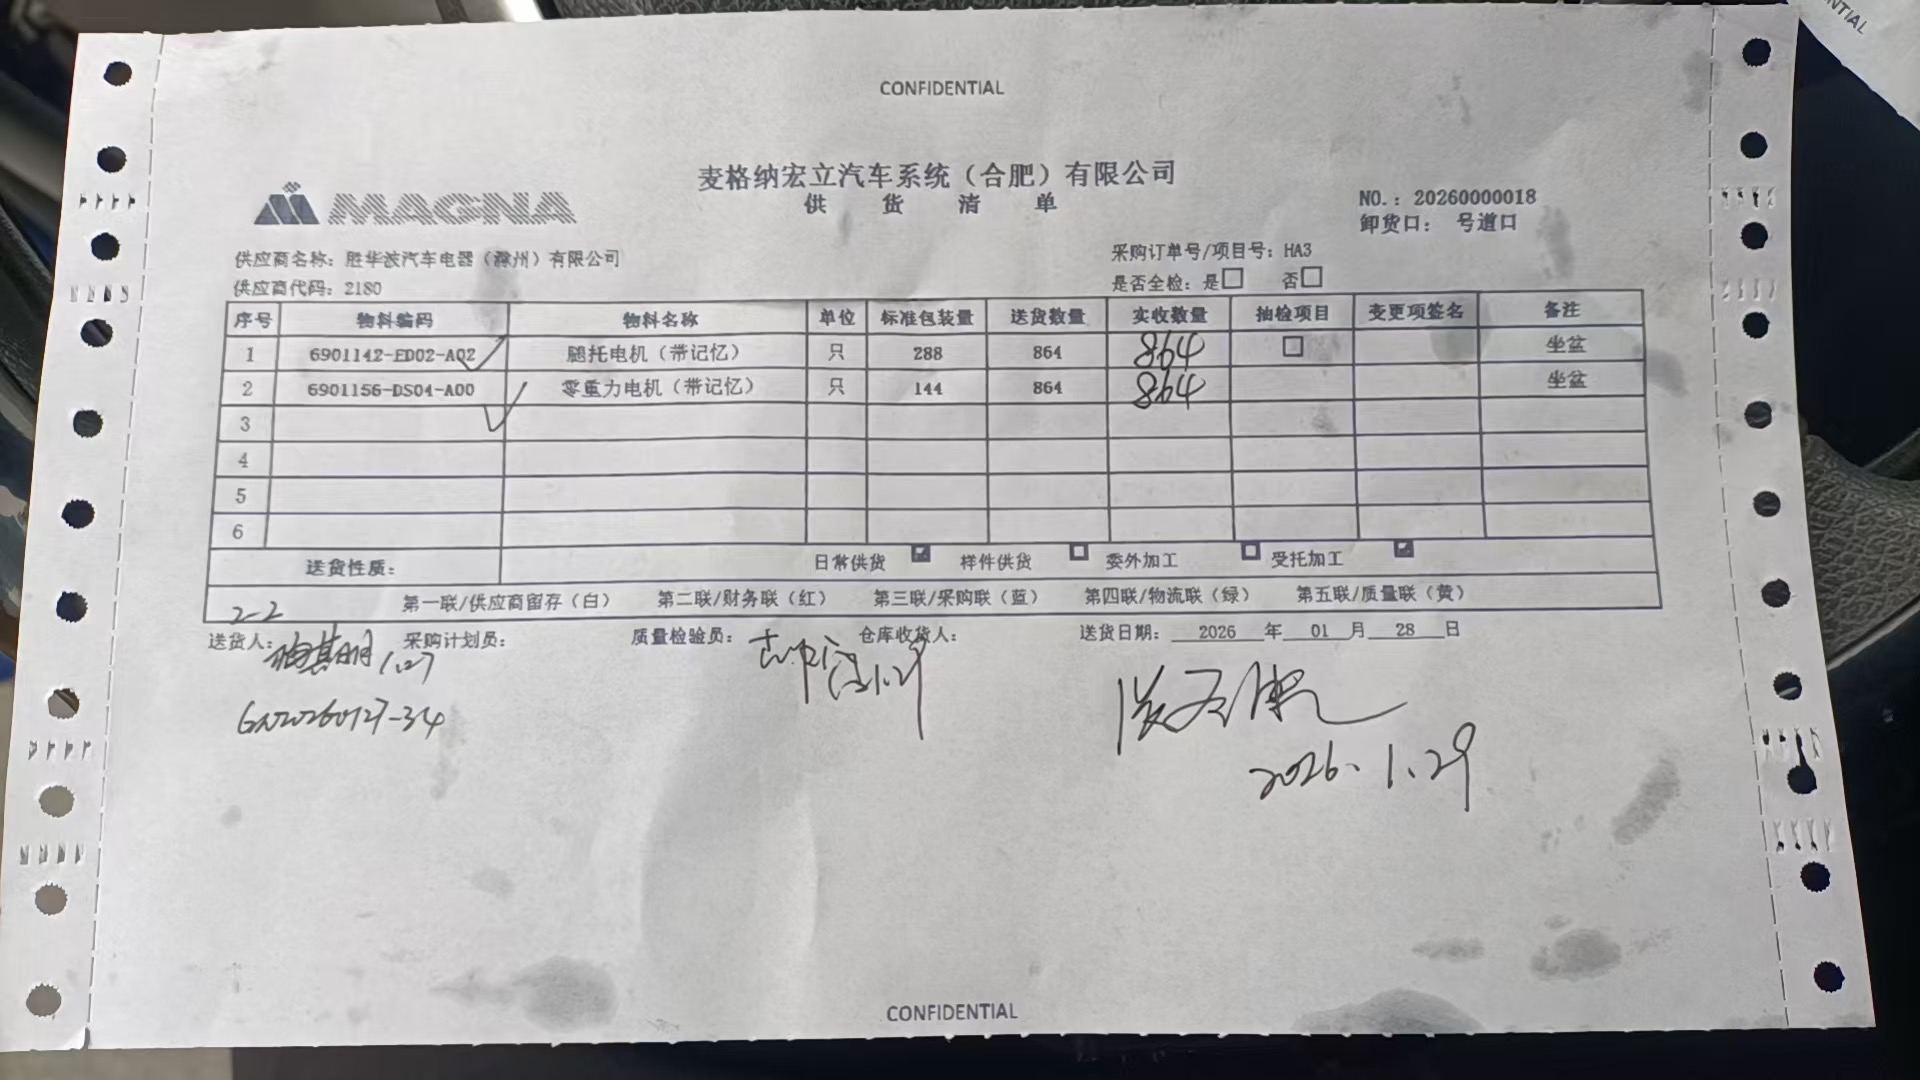 NTIAL
CONFIDENTIAL
MAGNA
麦格纳宏立汽车系统（合肥）有限公司
供 货 清 单
NO.：20260000018
卸货口： 号道口
供应商名称：胜华波汽车电器（滁州）有限公司
采购订单号/项目号：HA3
供应商代码：2180
是否全检：是□ 否□
序号 物料编码 物料名称 单位 标准包装量 送货数量 实收数量 抽检项目 变更项签名 备注
1 6901142-ED02-A02 腿托电机（带记忆） 只 288 864 864 □ 坐盆
2 6901156-DS04-A00 零重力电机（带记忆） 只 144 864 864 坐盆
3
4
5
6
送货性质： 日常供货 ☑ 样件供货 □ 委外加工 □ 受托加工 ☑
2-2
第一联/供应商留存（白） 第二联/财务联（红） 第三联/采购联（蓝） 第四联/物流联（绿） 第五联/质量联（黄）
送货人： 采购计划员： 质量检验员： 仓库收货人： 送货日期： 2026 年 01 月 28 日
1.27
1.29
2026.1.29
CONFIDENTIAL